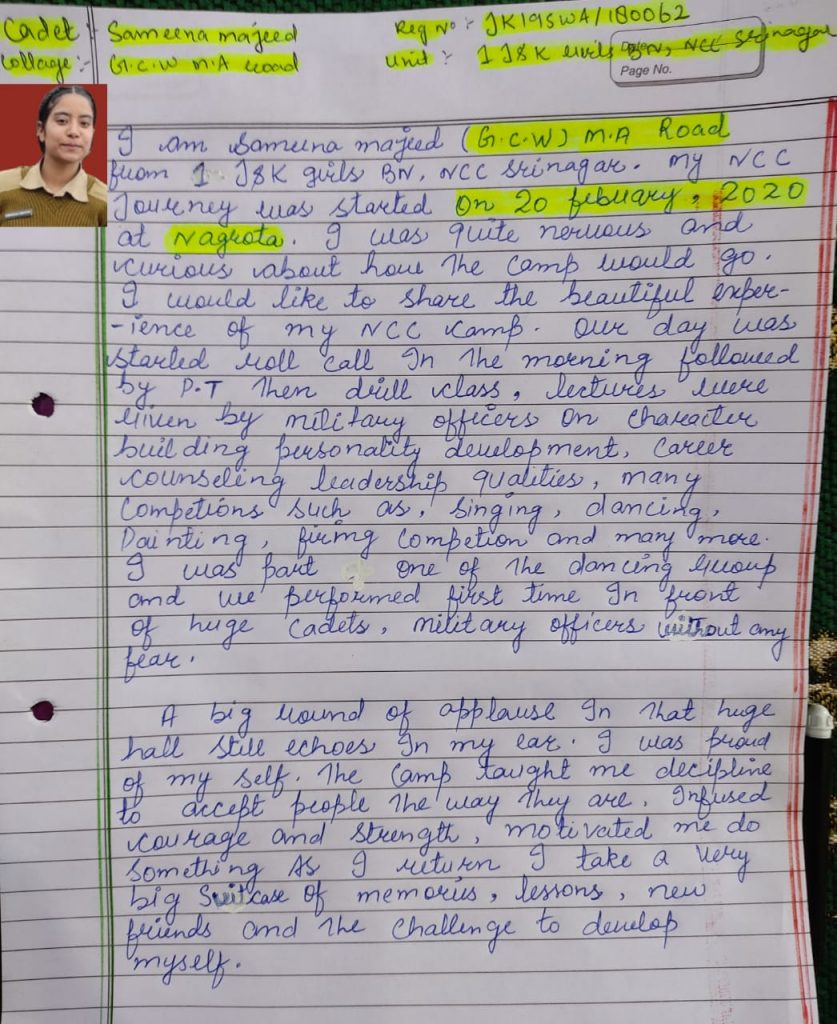 Cadet :- Sameena majeed
Reg No :- JK19SWA/180062
Collage :- G.C.W M.A road
Unit :- 1 J&K girls BN, NCC Srinagar
Page No.
I am Sameena majeed (G.C.W) M.A Road
from 1 J&K girls BN, NCC Srinagar. My NCC
Journey was started on 20 febuary, 2020
at Nagrota. I was quite nervous and
curious about how the camp would go.
I would like to share the beautiful exper-
-ience of my NCC camp. Our day was
started roll call In the morning followed
by P.T Then drill class, lectures were
given by military officers on character
building personality development, career
counseling leadership qualities, many
Competions such as, singing, dancing,
Painting, firing Competion and many more.
I was part of one of the dancing group
and we performed first time In front
of huge cadets, military officers without any
fear.
A big round of applause In that huge
hall still echoes In my ear. I was proud
of my self. The Camp taught me decipline
to accept people the way they are. Infused
courage and strength, motivated me do
something As I return I take a very
big Suitcase of memories, lessons, new
friends and the challenge to develop
myself.